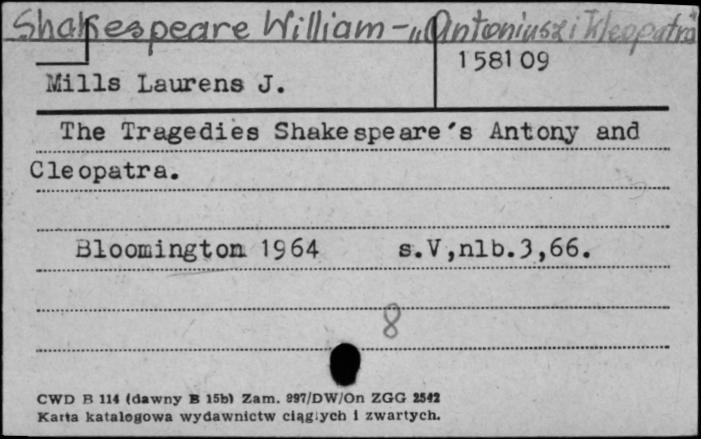 Shakespeare William - „Antoniusz i Kleopatra"
158109
Mills Laurens J.
The Tragedies Shakespeare's Antony and
Cleopatra.
Bloomington 1964 s.V,nlb.3,66.
8
CWD B 114 (dawny B 15b) Zam. 997/DW/On ZGG 2542
Karta katalogowa wydawnictw ciągłych i zwartych.